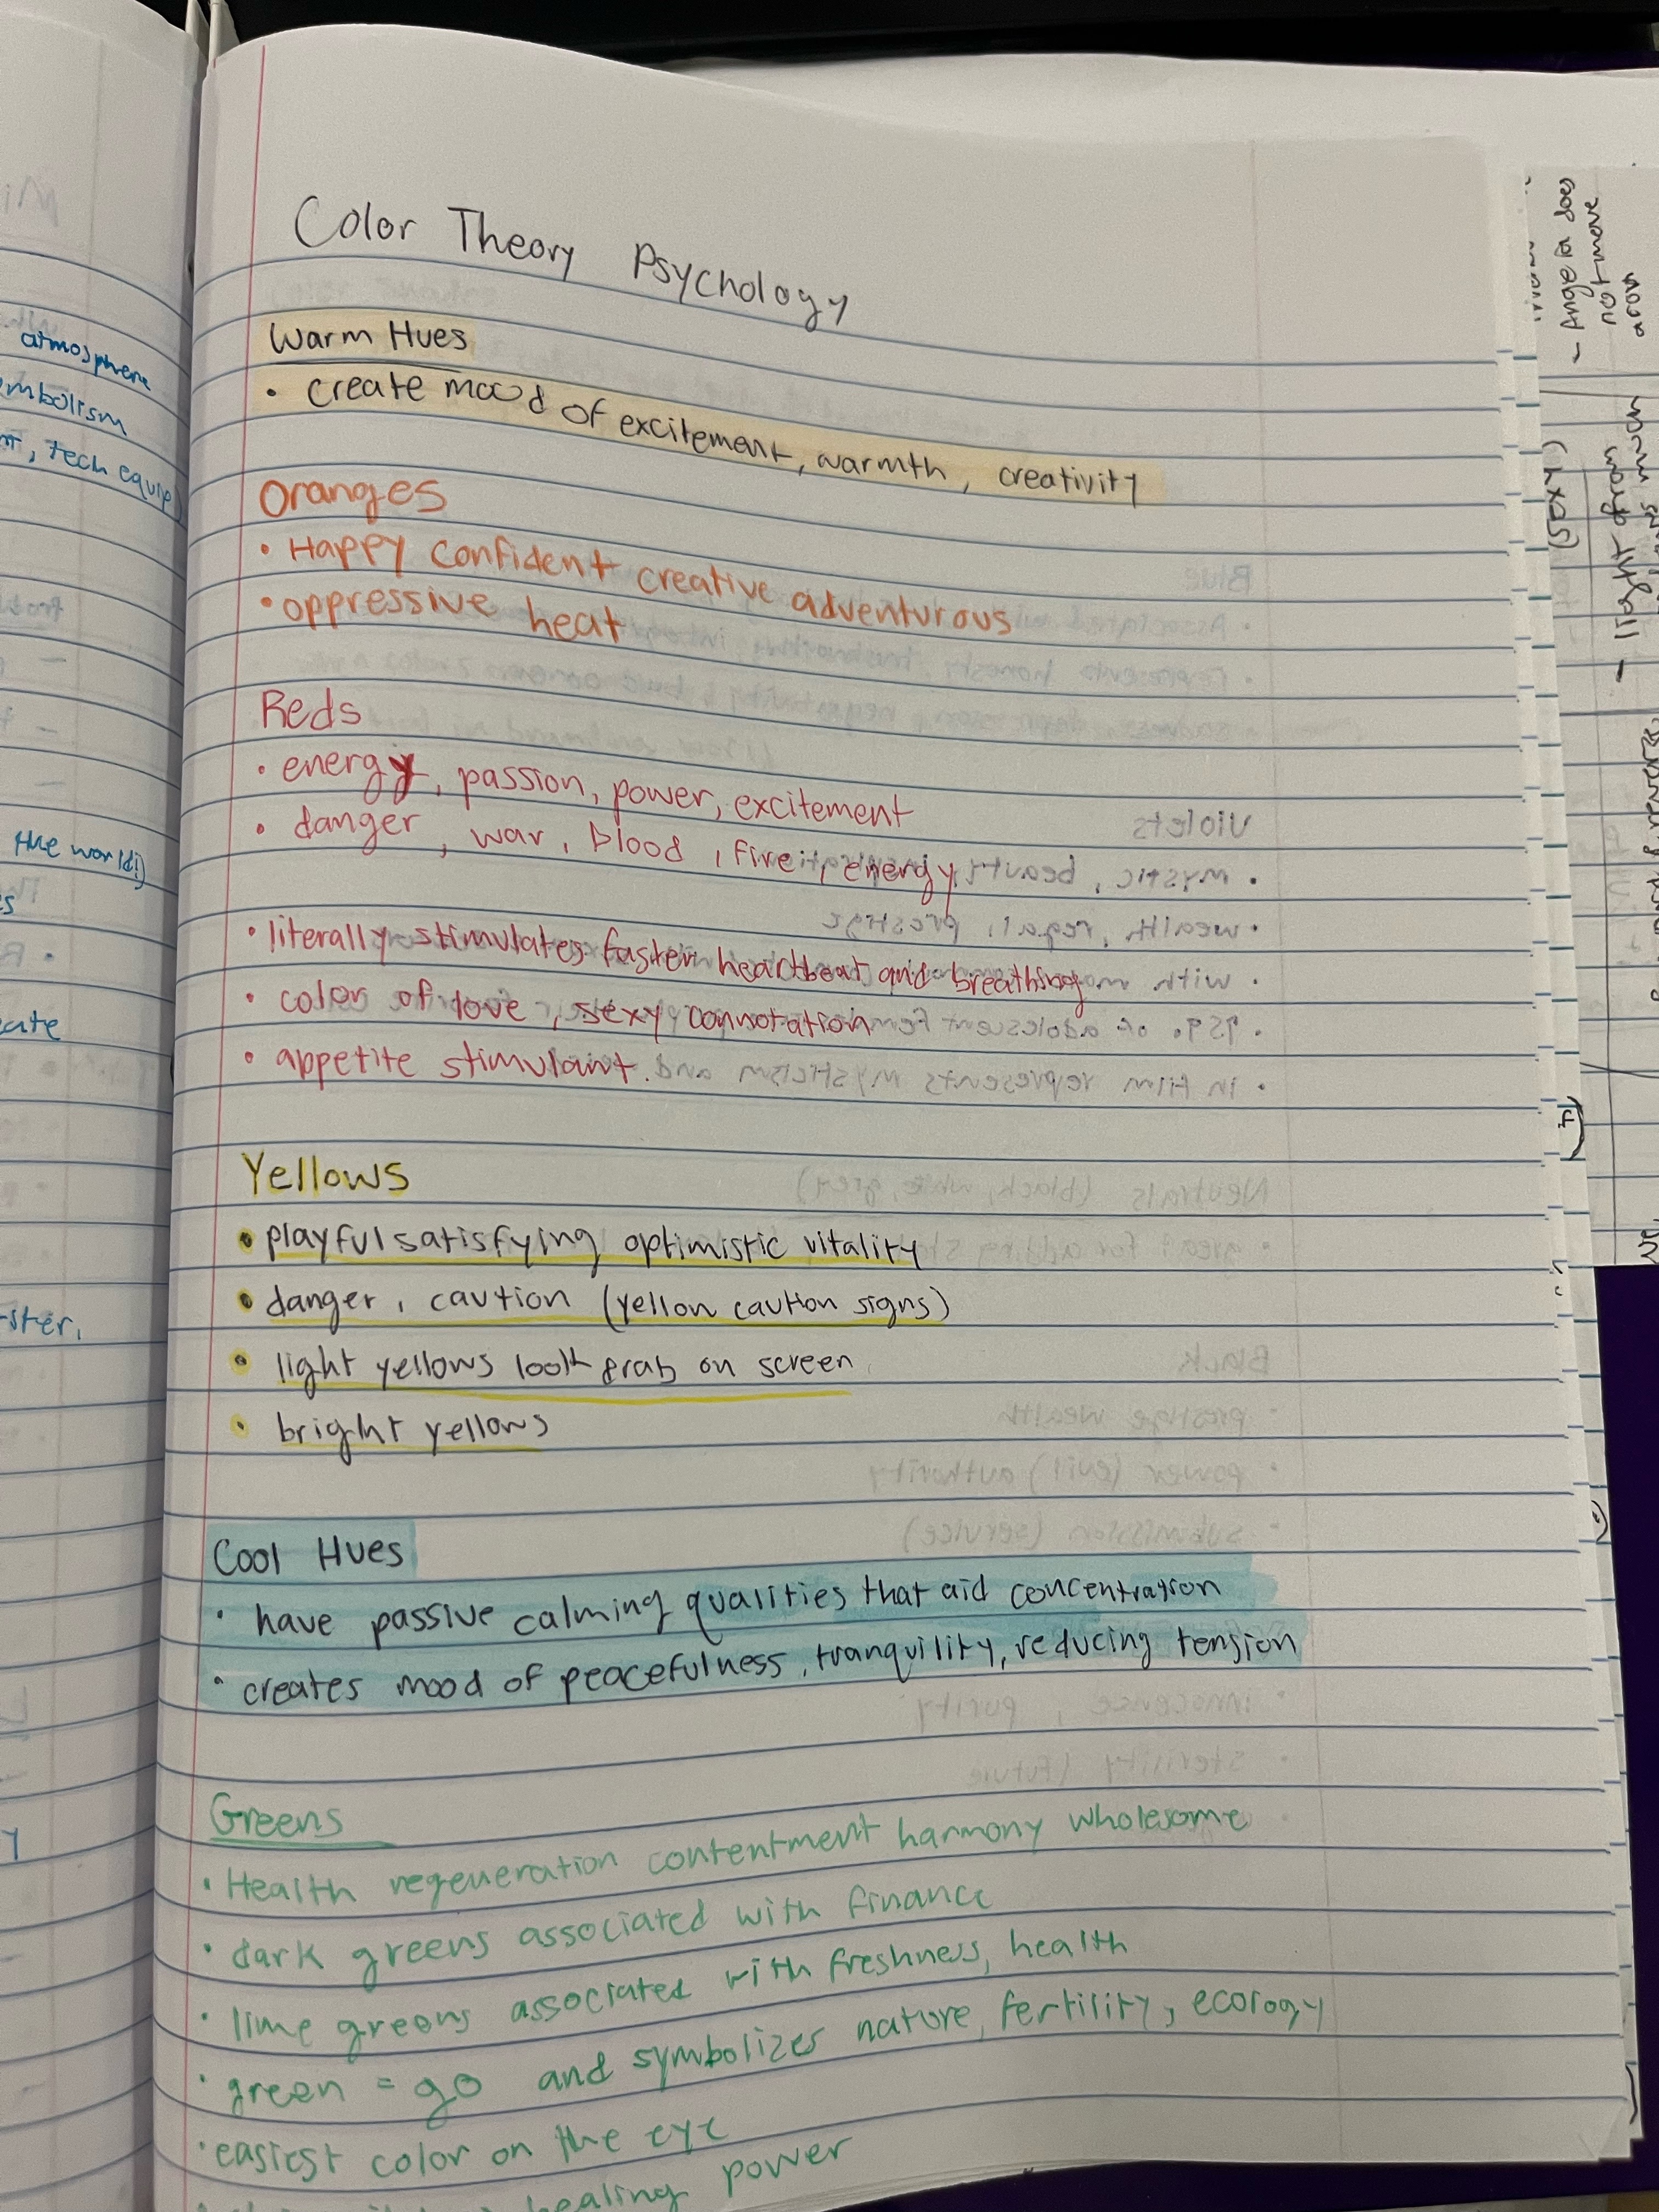 Color Theory Psychology
Warm Hues
• create mood of excitement, warmth, creativity
Oranges
• Happy confident creative adventurous
• oppressive heat
Reds
• energy, passion, power, excitement
• danger, war, blood, fire, energy
• literally stimulates faster heartbeat and breathing
• color of love, sexy connotation
• appetite stimulant.
Yellows
• playful satisfying optimistic vitality
• danger, caution (yellow caution signs)
• light yellows look on screen
• bright yellows
Cool Hues
• have passive calming qualities that aid concentration
• creates mood of peacefulness, tranquility, reducing tension
Greens
• Health regeneration contentment harmony wholesome
• dark greens associated with finance
• lime greens associated with freshness, health
• green = go and symbolizes nature, fertility, ecology
• easiest color on the eye
healing power
atmosphere
, tech equip
the world!)
- does
not move
(5x4)
- light from
much